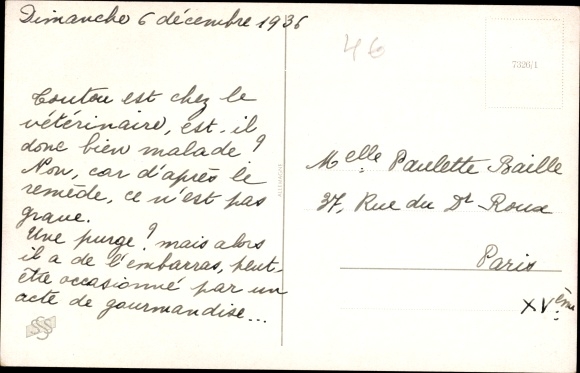 Dimanche 6 décembre 1936
46
7326/1
Toutou est chez le
vétérinaire, est-il
donc bien malade ?
Non, car d'après le
remède, ce n'est pas
grave.
Une purge ? mais alors
il a de l'embarras, peut-
être occasionné par un
acte de gourmandise...
Melle Paulette Baille
37, Rue du Dr Roux
Paris
XVème